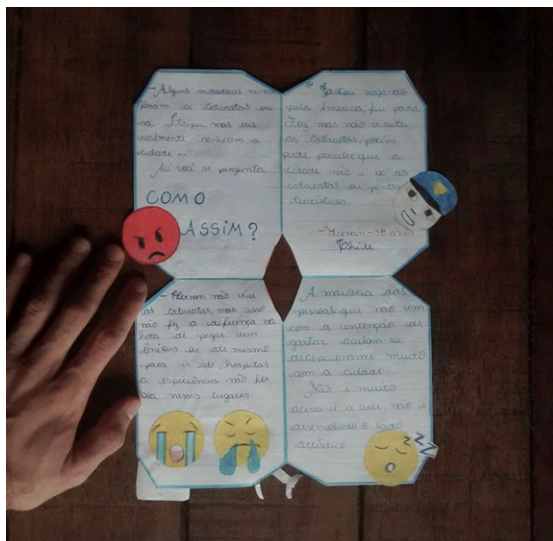 - Alguns moradores nunca
foram as Cataratas ou
na Itaipu, mas eles
realmente conhecem a
cidade ...
Aí você se pergunta
COMO
ASSIM?
" Gastei viajando
pela América, fui para
Foz mas não vi
as Cataratas, porém
pude perceber que a
cidade não é só as
cataratas ou pontos
turísticos.
- Hernan - 38 anos
Chile
- Hernan não viu
as cataratas, mas isso
não fez a diferença na
hora de pegar um
ônibus ou até mesmo
para ir até hospitais
a experiência não foi
boa nesses lugares.
A maioria das
pessoas que não vem
com a intenção de
gastar acabam se
decepcionando muito
com a cidade.
Não é muito
acessível a arte, não é
desenvolvido o lado
artístico
ZZZ